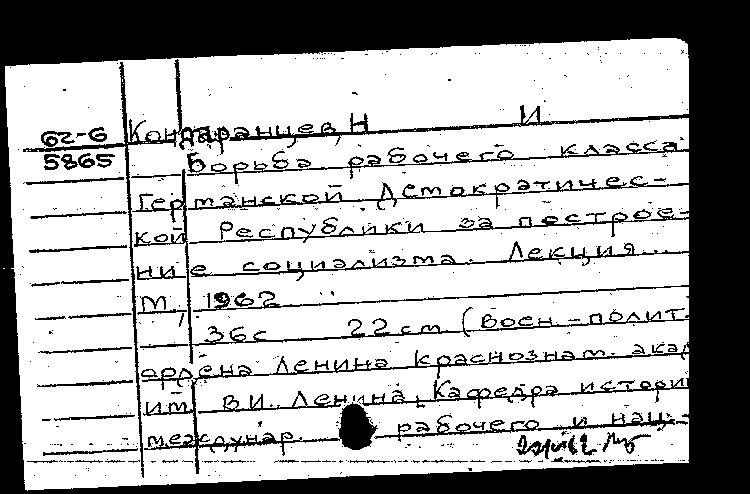 62-6 Кондаранцев, Н И
5865 Борьба рабочего класса
Германской Демократичес-
кой Республики за построе-
ние социализма. Лекция...
М., 1962
36с 22см (Воен.-полит.
ордена Ленина краснознам. акад
им. В.И. Ленина. Кафедра истори
междунар. рабочего и нац.-